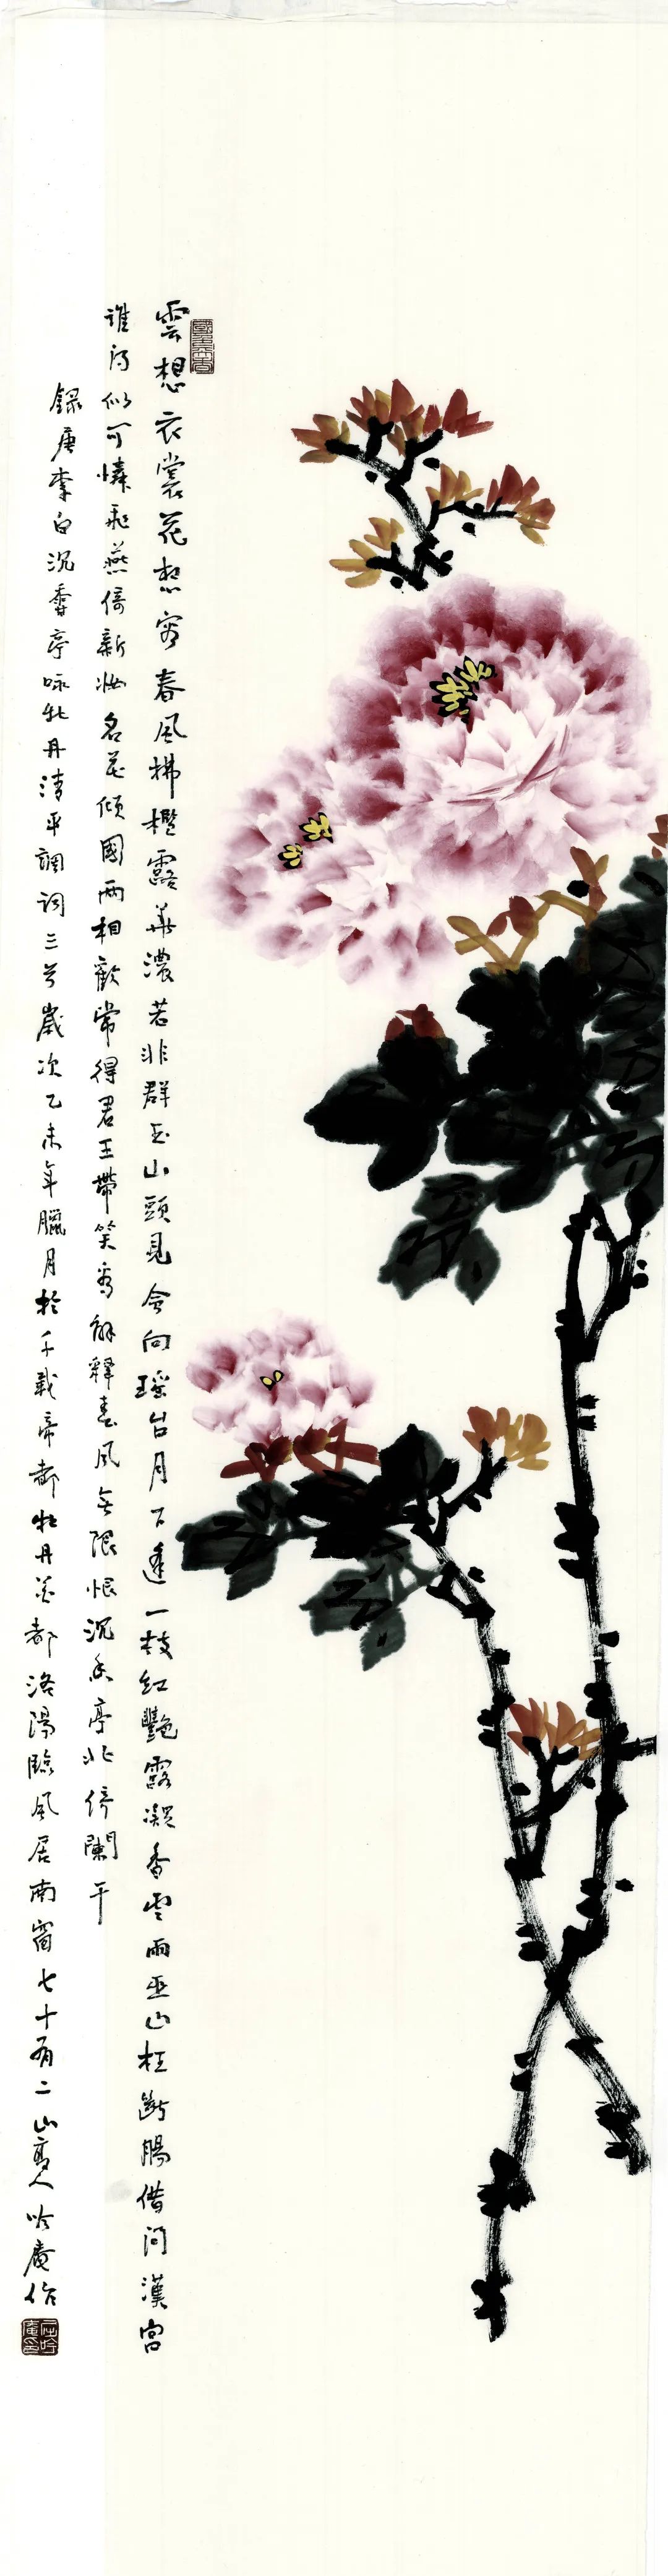 雲想衣裳花想容春風拂檻露華濃若非群玉山頭見會向瑶台月下逢一枝紅豔露凝香雲雨巫山枉斷腸借问漢宮
誰得似可憐飛燕倚新妝名花傾國两相歡常得君王带笑看解釋春风無限恨沉香亭北倚闌干
録唐李白沉香亭咏牡丹清平調詞三首歲次乙未年臘月於千載帝都牡丹花都洛陽臨風居南窗七十有二山野人吟庵作
國色天香